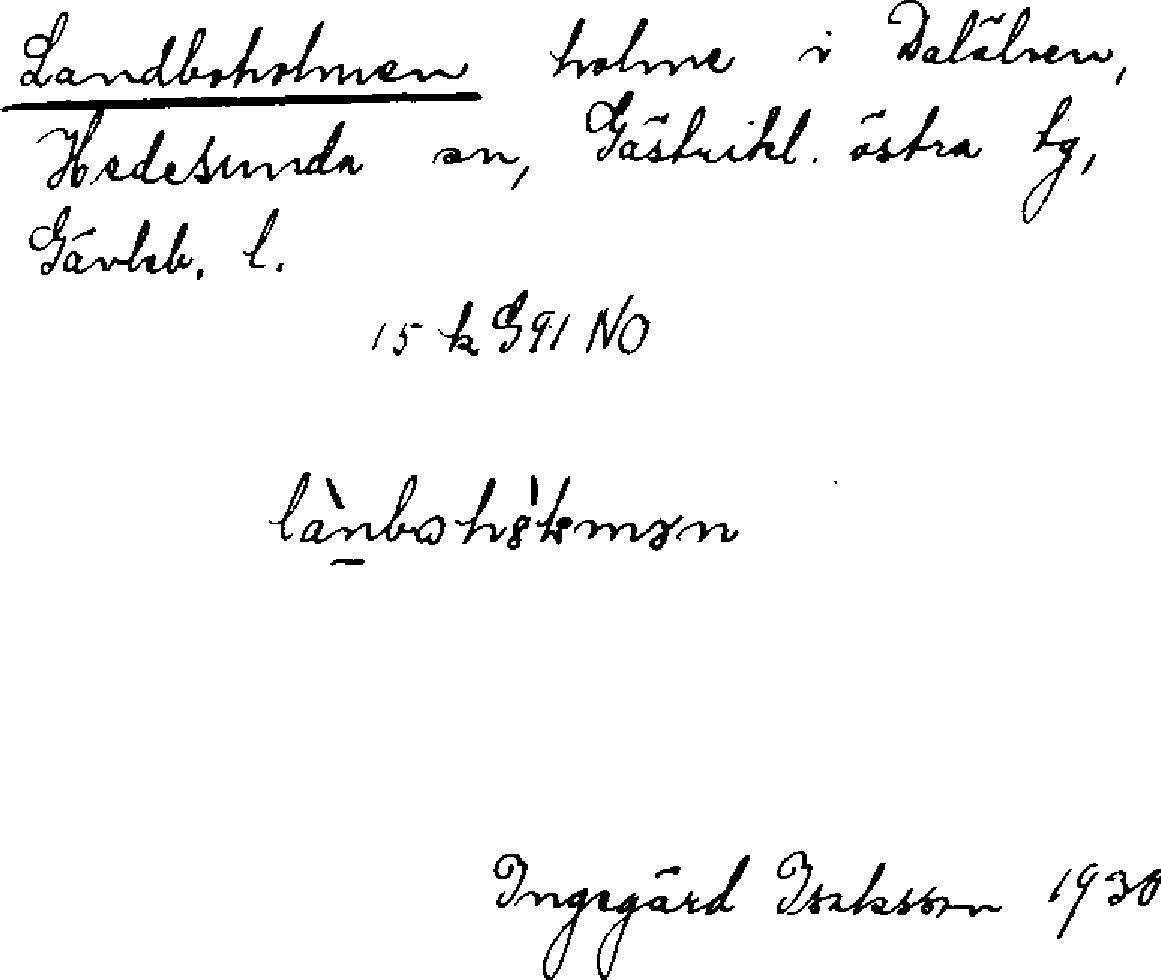 Landboholmen holme i Dalälven,
Hedesunda sn, Gästrikl. östra tg,
Gävleb. l.
15 k G91 NO
Ingegärd Isaksson 1930